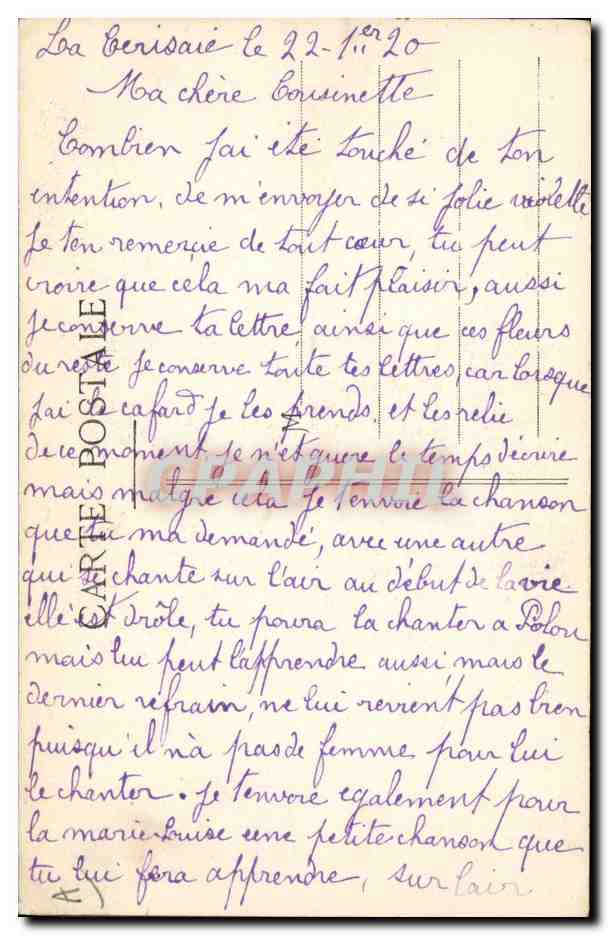 La Cerisaie le 22-1er 20
Ma chère Cousinette
Combien j'ai été touché de ton
intention, de m'envoyer de si jolie violette
Je t'en remercie de tout cœur, tu peut
croire que cela ma fait plaisir, aussi
je conserve ta lettre ainsi que ces fleurs
du reste je conserve toute tes lettres, car lorsque
j'ai le cafard je les prends, et les relie
de ce moment je n'est quere le temps d'écrire
mais malgré cela je t'envoie la chanson
que tu ma demandé, avec une autre
qui se chante sur l'air au début de la vie
elle est drôle, tu poura la chanter a Polou
mais lui peut l'apprendre aussi, mais le
dernier refrain, ne lui revient pas bien
puisqu'il n'à pas de femme pour lui
le chanter. Je t'envoie egalement pour
la marie-Louise une petite chanson que
tu lui fera apprendre, sur l'air
CARTE POSTALE
CPAPHIL